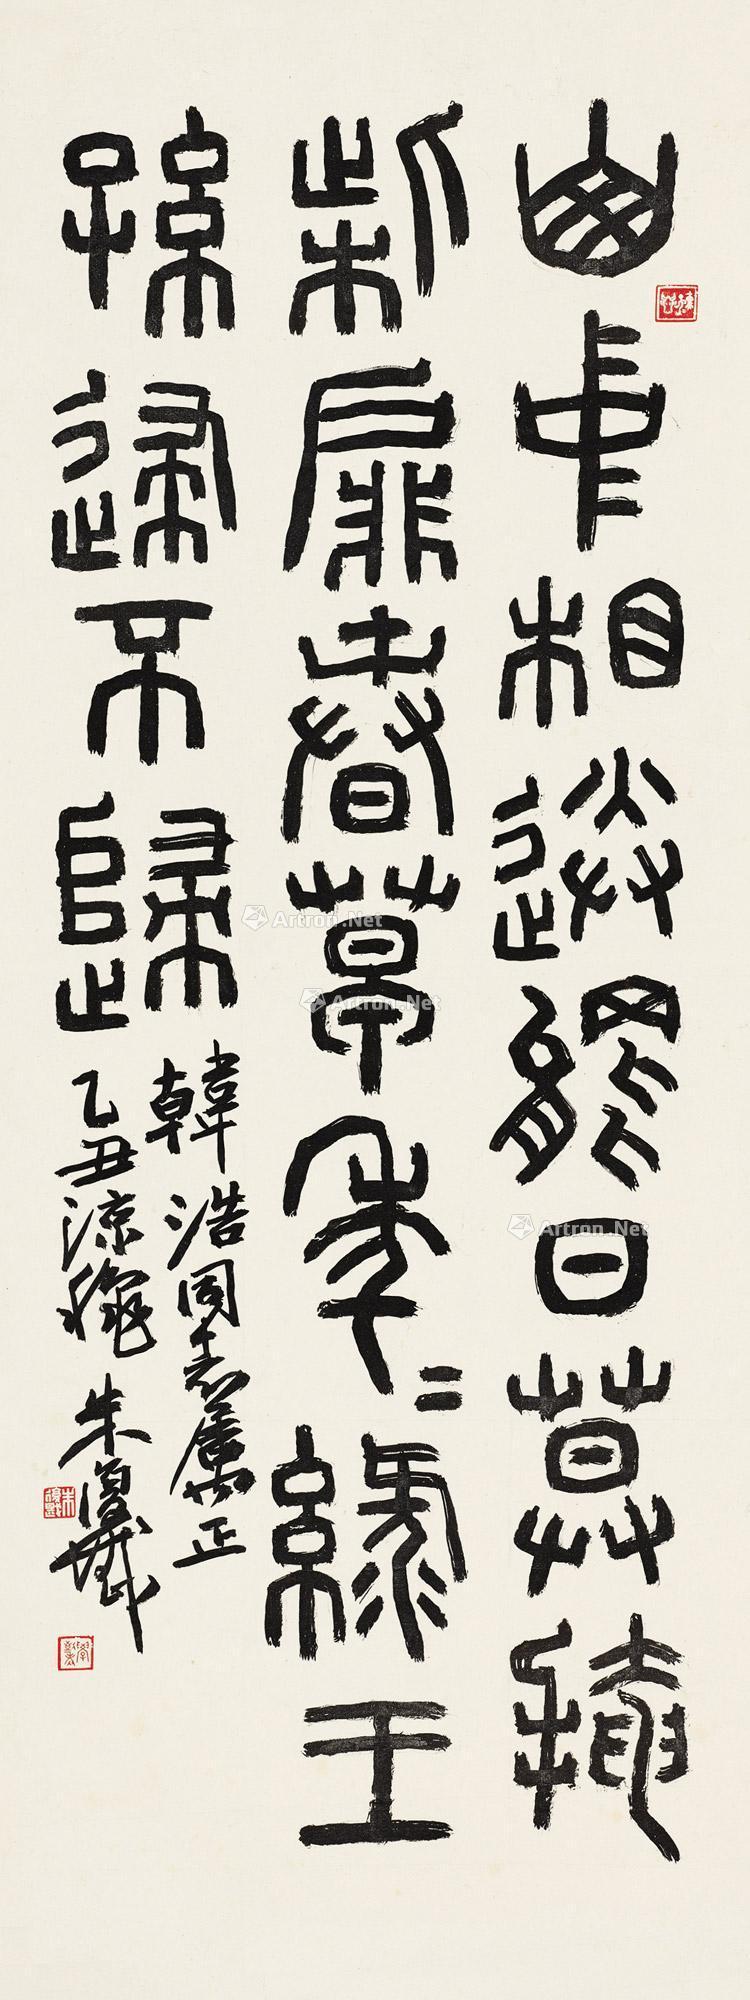 山中相送罷日暮掩
柴扉春草年〻綠王
孫歸不歸
韓浩同志屬正
乙丑涼龝 朱復戡
朱復戡
Artron.Net
Artron.Net
Artron.Net